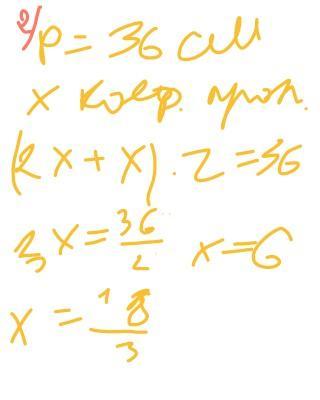 2) P = 36 см
x коэф. проп.
(2x + x) . 2 = 36
3x = 36/2 x = 6
x = 18/3